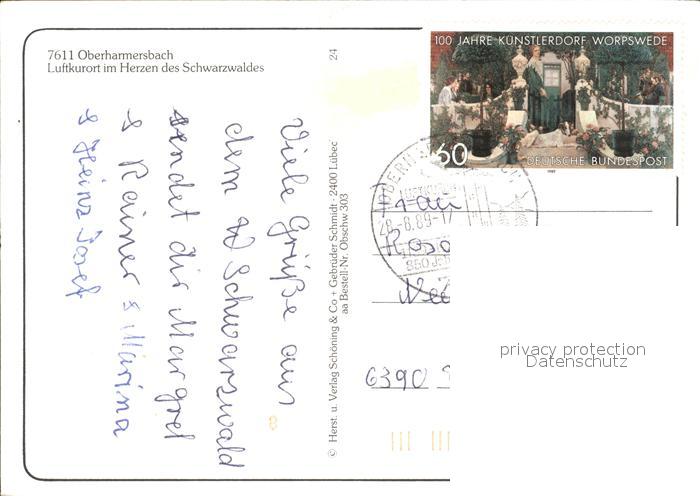 7611 Oberharmersbach
Luftkurort im Herzen des Schwarzwaldes
24
100 JAHRE KÜNSTLERDORF WORPSWEDE
60
DEUTSCHE BUNDESPOST
28.-8.89-17
Viele Grüße aus
dem Schwarzwald
sendet dir Margret
& Rainer & Marina
& Heinz Josef
© Herst. u. Verlag Schöning & Co + Gebrüder Schmidt · 2400 Lübec
aa Bestell-Nr. Obschw 303
6390
privacy protection
Datenschutz